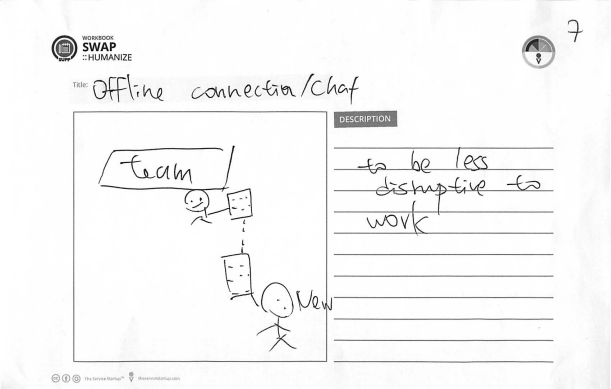 WORKBOOK
SWAP
:: HUMANIZE
7
Title: Offline connection/Chat
DESCRIPTION
team
to be less
disruptive to
work
New
This Service Startup™ thisservicestartup.com